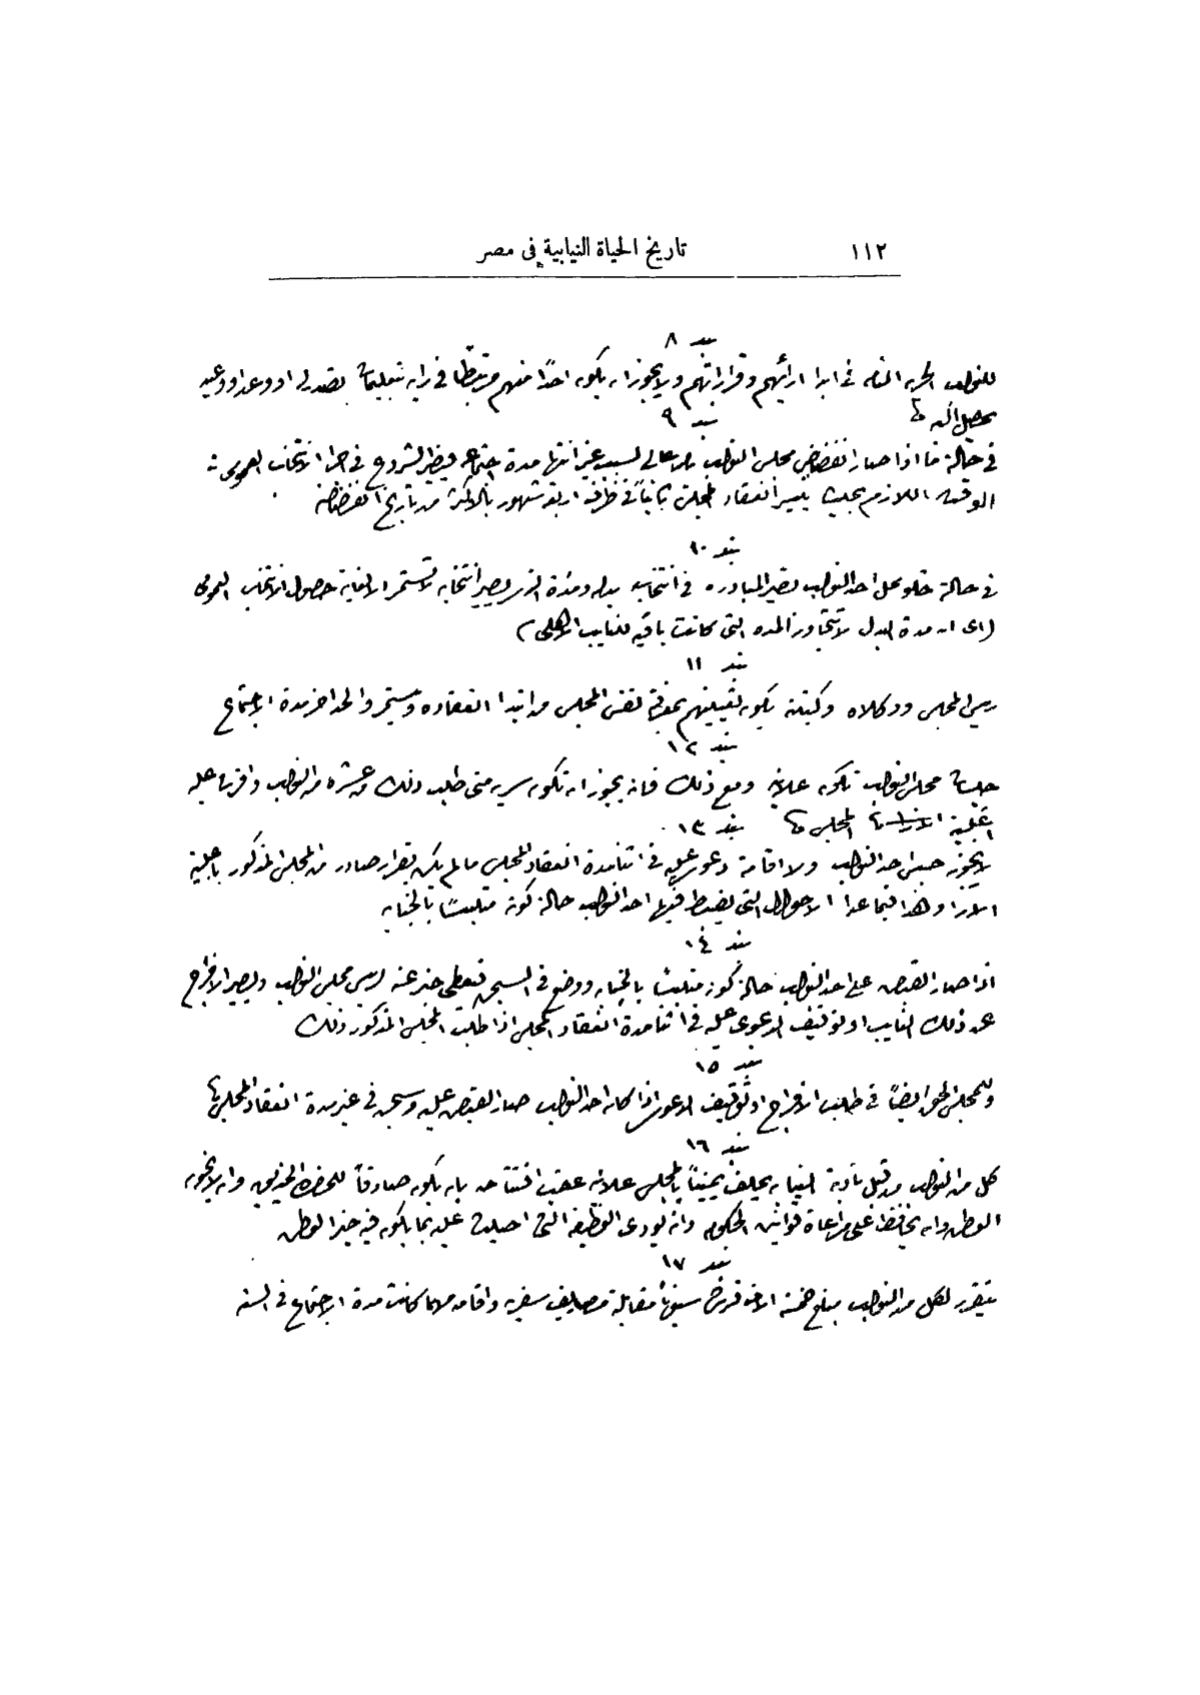 ١١٢ تاريخ الحياة النيابية في مصر
بند ٨
للنواب الحريه التامه في ابدا ارائهم وقراراتهم ولا يجوز ان يكون احدًا منهم مرتبطًا في رايه بتعليمات تصدر له او وعد او وعيد
يحصل اليه
بند ٩
في حالة ما اذا صار انفضاض مجلس النواب بامر عالي لسبب غير انتها مدة اجتماعه فيصير الشروع في اجرا الانتخاب العمومي في
الوقت اللازم بحيث يتيسر انعقاد المجلس ثانيًا في ظرف اربعة شهور بالاكثر من تاريخ انفضاضه
بند ١٠
في حالة خلو محل احد النواب تصير المبادره في انتخاب بدله ومدة الذي يصير انتخابه لا تستمر الا لغاية حصول الانتخاب العمومي
(اي ان مدة البدل لا تتجاوز المده التي كانت باقيه للنايب الاصلي)
بند ١١
ريس المجلس ووكلاه وكتبته يكون تعيينهم بمعرفة نفس المجلس من ابتدا انعقاده وتستمر والحد اخر مدة الاجتماع
بند ١٢
جلسات مجلس النواب تكون علانية ومع ذلك فانه يجوز ان تكون سريه متى طلب ذلك عشره من النواب واقرت عليه
اغلبية المجلس
بند ١٣
لا يجوز حبس احد النواب ولا اقامة دعوى عليه في اثنا مدة انعقاد المجلس ما لم يكن بقرار صادر من المجلس المذكور باغلبية
الارا وهذا فيما عدا الاحوال التي يضبط فيها احد النواب حالة كونه متلبسًا بالجنايه
بند ١٤
اذا صار القبض على احد النواب حالة كونه متلبسًا بالجنايه ووضع في السجن فيعطى خبر عنه لريس مجلس النواب ويصير الافراج
عن ذلك النايب او توقيف الدعوى عليه في اثنا مدة انعقاد المجلس اذا طلب المجلس المذكور ذلك
بند ١٥
وللمجلس الحق ايضًا في طلب الافراج او توقيف الدعوى اذا كان احد النواب صار القبض عليه وسجن في غير مدة انعقاد المجلس
بند ١٦
كل من النواب من قبل تادية النيابه يحلف يمينًا بالمجلس علانيه عقب افتتاحه بان يكون صادقًا للحضرة الخديويه وان لا يخون
الوطن وان يحافظ على مراعاة قوانين الحكومه وان يودي الوظيفه التي احيلت عليه بما يكون فيه خير الوطن
بند ١٧
يتقرر لكل من النواب مبلغ خمسة الاف قرش سنويًا مقابلة مصاريف سفريه واقامه مهما كانت مدة الاجتماع في السنه